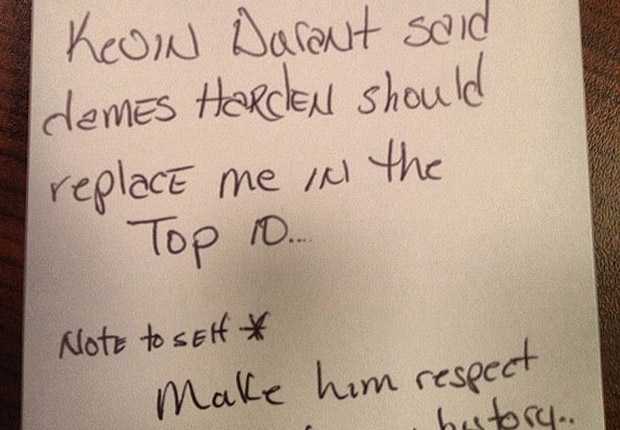 Kevin Durant said
James Harden should
replace me in the
Top 10...
Note to self *
Make him respect
history..